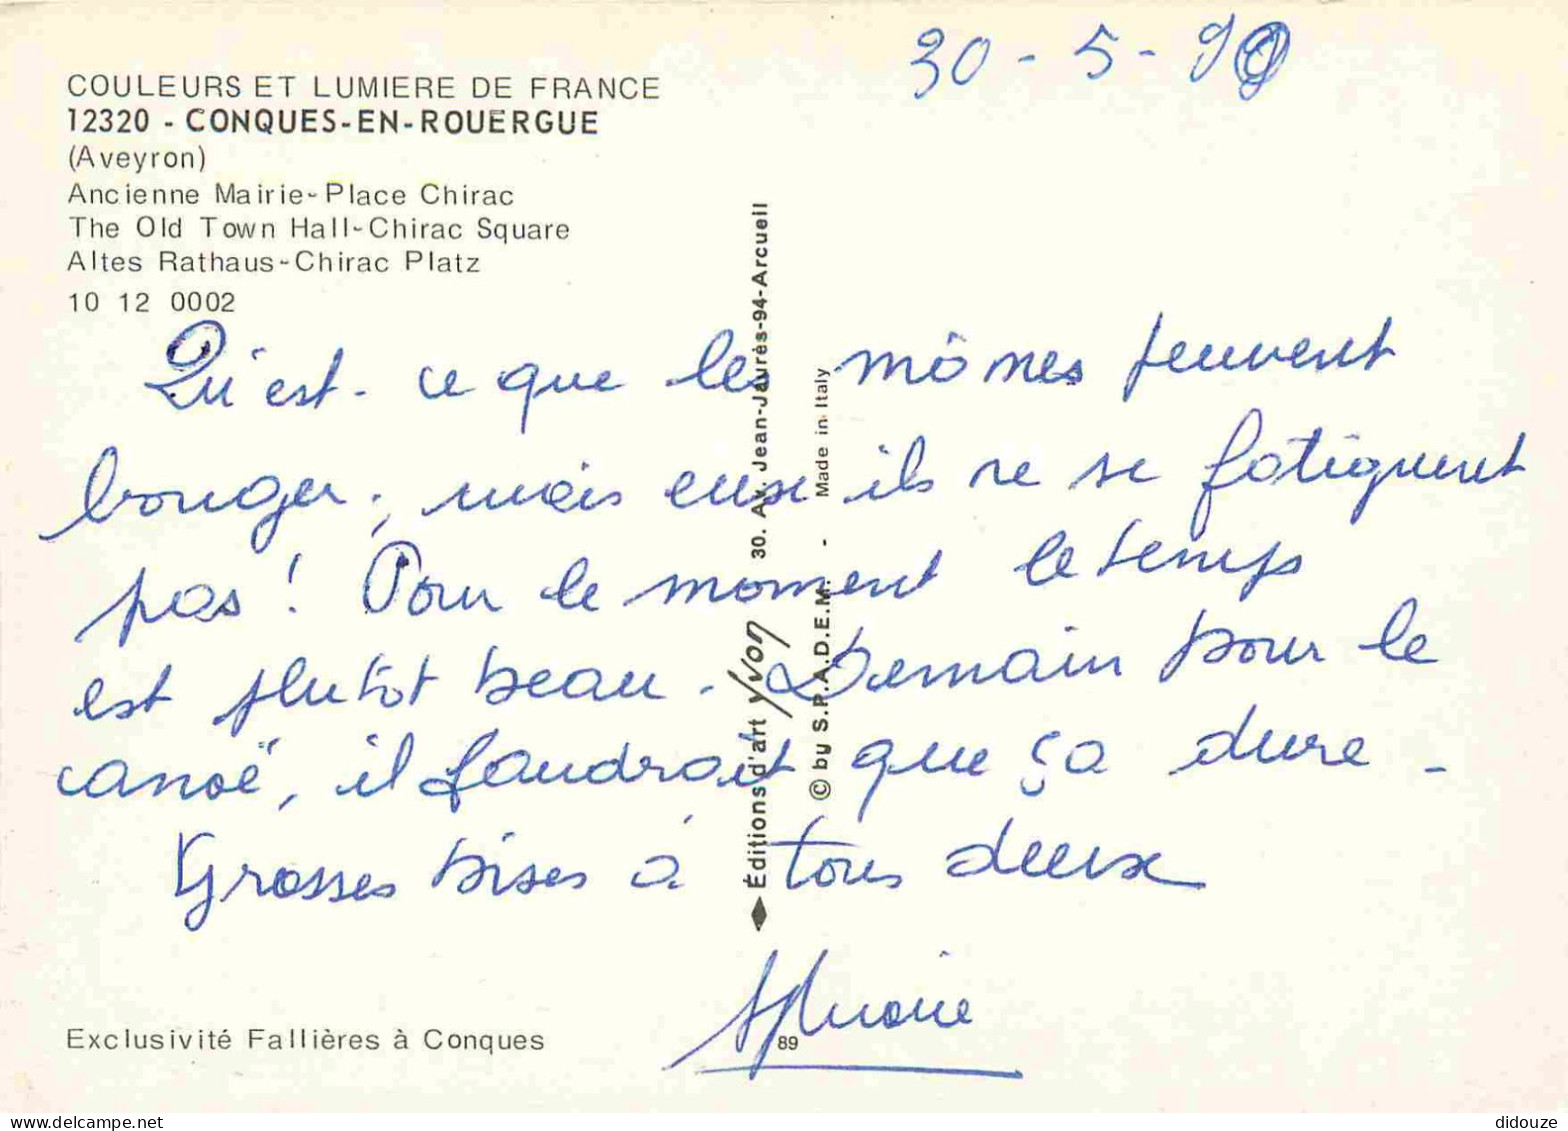 30-5-9
COULEURS ET LUMIERE DE FRANCE
12320 - CONQUES-EN-ROUERGUE
(Aveyron)
Ancienne Mairie-Place Chirac
The Old Town Hall-Chirac Square
Altes Rathaus-Chirac Platz
10 12 0002
Qu'est-ce que les mômes peuvent
bouger, mais eux ils ne se fatiguent
pas ! Pour le moment le temps
est plutôt beau. Demain pour le
canoë, il faudrait que ça dure.
Grosses bises à tous deux
Éditions d'art Yvon 30. Av. Jean-Jaurès-94-Arcueil
© by S.P.A.D.E.M. - Made in Italy
89
Exclusivité Fallières à Conques
didouze